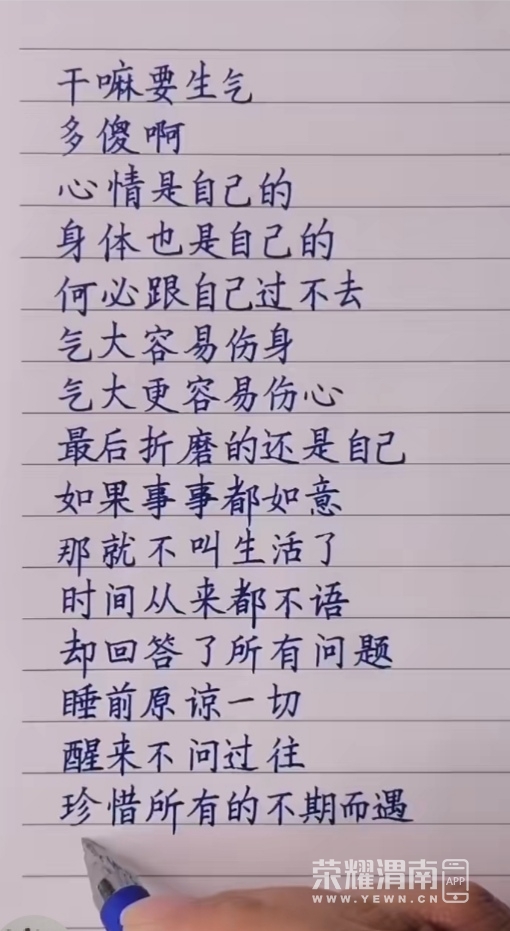 干嘛要生气
多傻啊
心情是自己的
身体也是自己的
何必跟自己过不去
气大容易伤身
气大更容易伤心
最后折磨的还是自己
如果事事都如意
那就不叫生活了
时间从来都不语
却回答了所有问题
睡前原谅一切
醒来不问过往
珍惜所有的不期而遇
荣耀渭南 APP
WWW.YEWN.CN